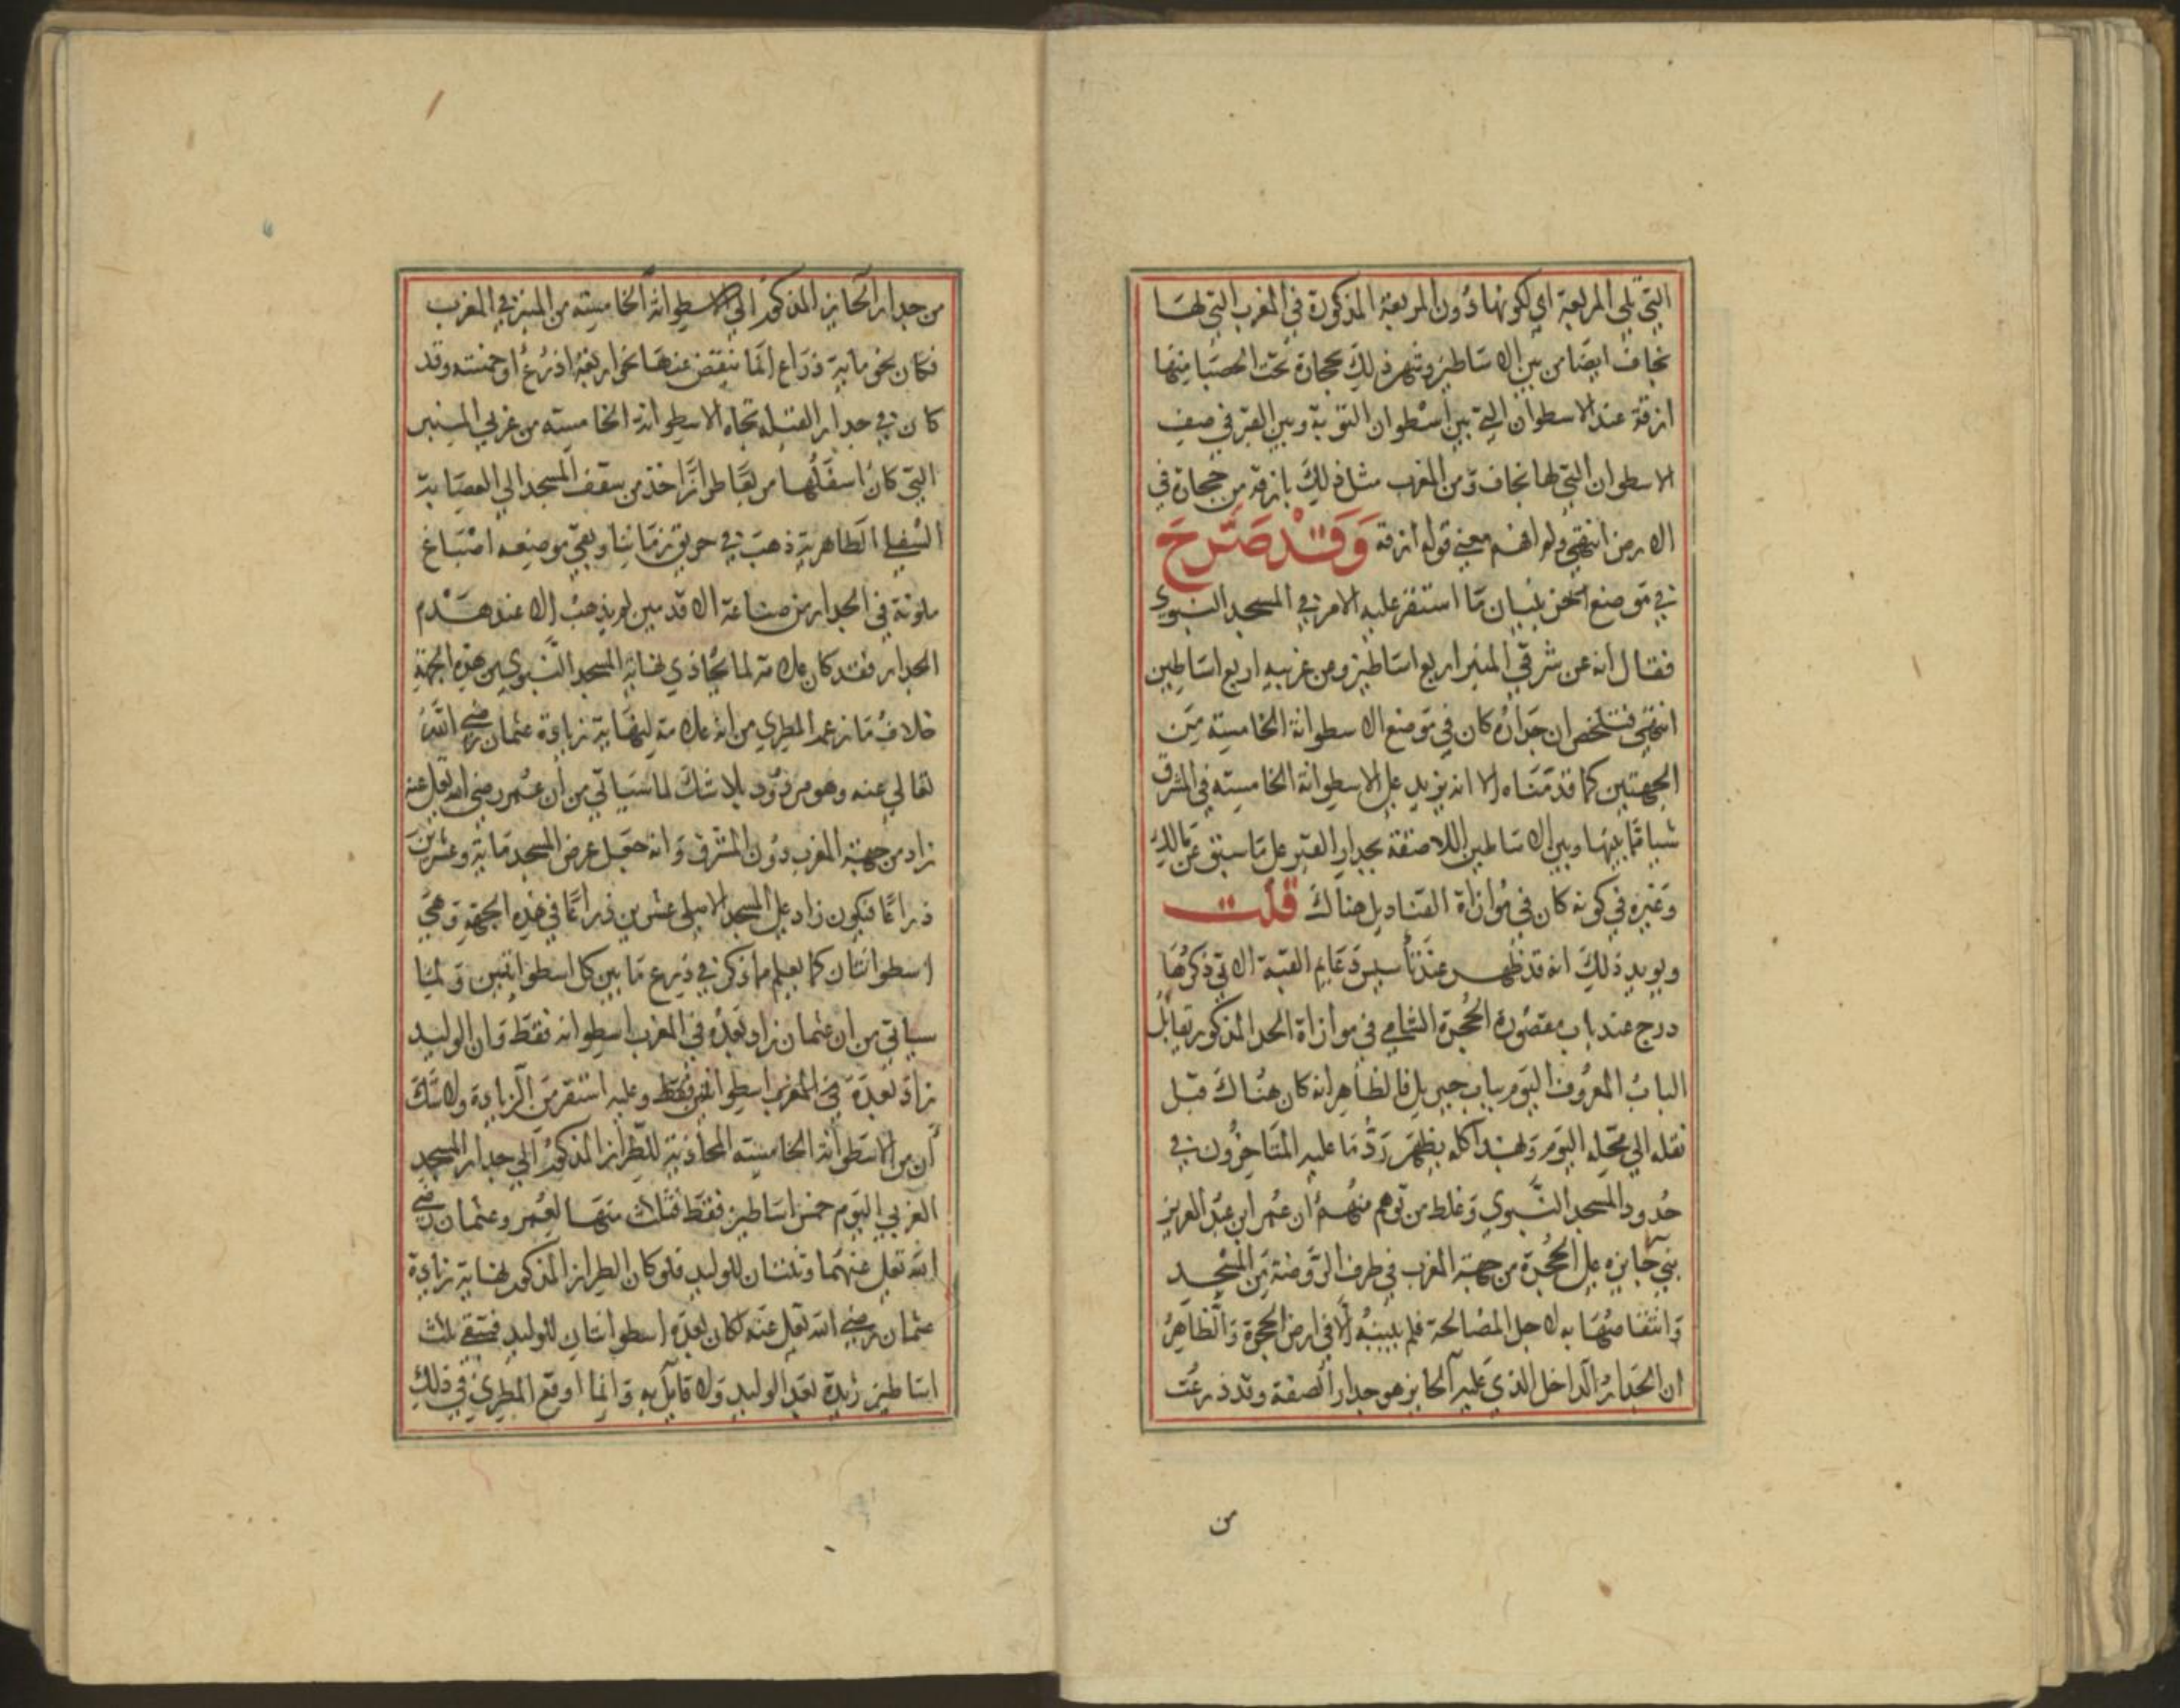 التي تلي المربعة اي لكونها دون المربعة المذكورة في المغرب التي لها
نجاف ايضا من بين الاساطين وشهر ذلك بحجارة تحت الحصبا منها
ازقة عند الاسطوان التي بين اسطوان التوبة وبين القبر في صف
الاسطوان التي لها نجاف ومن المغرب مثل ذلك بازقة من حجارة في
الارض انتهى ولم افهم معنى قوله ازقة وقد صرح
في موضع اخر ببيان ما استقر عليه الامر في المسجد النبوي
فقال انه عن شرقي المنبر اربع اساطين ومن غربيه اربع اساطين
انتهى فتلخص ان جداره كان في موضع الاسطوانة الخامسة من
الجهتين كما قدمناه الا انه يزيد على الاسطوانة الخامسة في المشرق
شيا مما بينها وبين الاساطين اللاصقة بجدار القبر على ما سبق عن مالك
وغيره في كونه كان في موازاة القناديل هناك قلت
ويويد ذلك انه قد ظهر عند تأسيس دعايم القبة الاتي ذكرها
درج عند باب مقصورة الحجرة الشامي في موازاة الحد المذكور تقابل
الباب المعروف اليوم بباب جبريل فالظاهر انه كان هناك قبل
نقله الي محله اليوم وبهذا كله يظهر رد ما عليه المتاخرون في
حدود المسجد النبوي وغلط من توهم منهم ان عمر ابن عبد العزيز
بني حايزه على الحجرة من جهة المغرب في طرف الروضة من المسجد
وانتفا منها به لاجل المصالحة فلم يبنه الا في ارض الحجرة والظاهر
ان الجدار الداخل الذي عليه الحايز هو جدار الصفة وقد ذرعت
من
من جدار الحايز المذكور الي الاسطوانة الخامسة من المنبر في المغرب
فكان نحو ماية ذراع انما ينقص عنها نحو اربعة اذرع او خمسه وقد
كان في جدار القبلة تجاه الاسطوانة الخامسة من غربي المنبر
التي كان اسفلها مربعا طرازا اخذ من سقف المسجد الي العصابة
السفلي الظاهرية ذهب في حريق زماننا وبقي موضعه اصباغ
ملونة في الجدار من صناعة الاقدمين لم يذهب الا عند هدم
الجدار فقد كان علامة لما يحاذي نهاية المسجد النبوي من هذه الجهة
خلاف ما زعمه المطري من انه علامة لنهاية زيادة عثمان رضي الله
تعالي عنه وهو مردود بلا شك لما سياتي من ان عمر رضي الله تعالى عنه
زاد من جهة المغرب دون المشرق وانه جعل عرض المسجد ماية وعشرين
ذراعا فيكون زاد على المسجد الاصلي عشرين ذراعا في هذه الجهة وهي
اسطوانتان كما يعلم مما ذكر في ذرع ما بين كل اسطوانتين ولما
سياتي من ان عثمان زاد بعده في المغرب اسطوانه فقط وان الوليد
زاد بعده في المغرب اسطوانتين فقط وعليه استقرت الزيادة ولا شك
أن من الاسطوانة الخامسة المحاذية للطراز المذكور الي جدار المسجد
الغربي اليوم خمس اساطين فقط فثلاث منها لعمر وعثمان رضي
الله تعالى عنهما وثنتان للوليد فلو كان الطراز المذكور نهاية زيادة
عثمان رضي الله تعالى عنه لكان بعده اسطوانتان للوليد فتبقى ثلاث
اساطين زايدة بعد الوليد ولا قايل به وانما اوقع المطري في ذلك